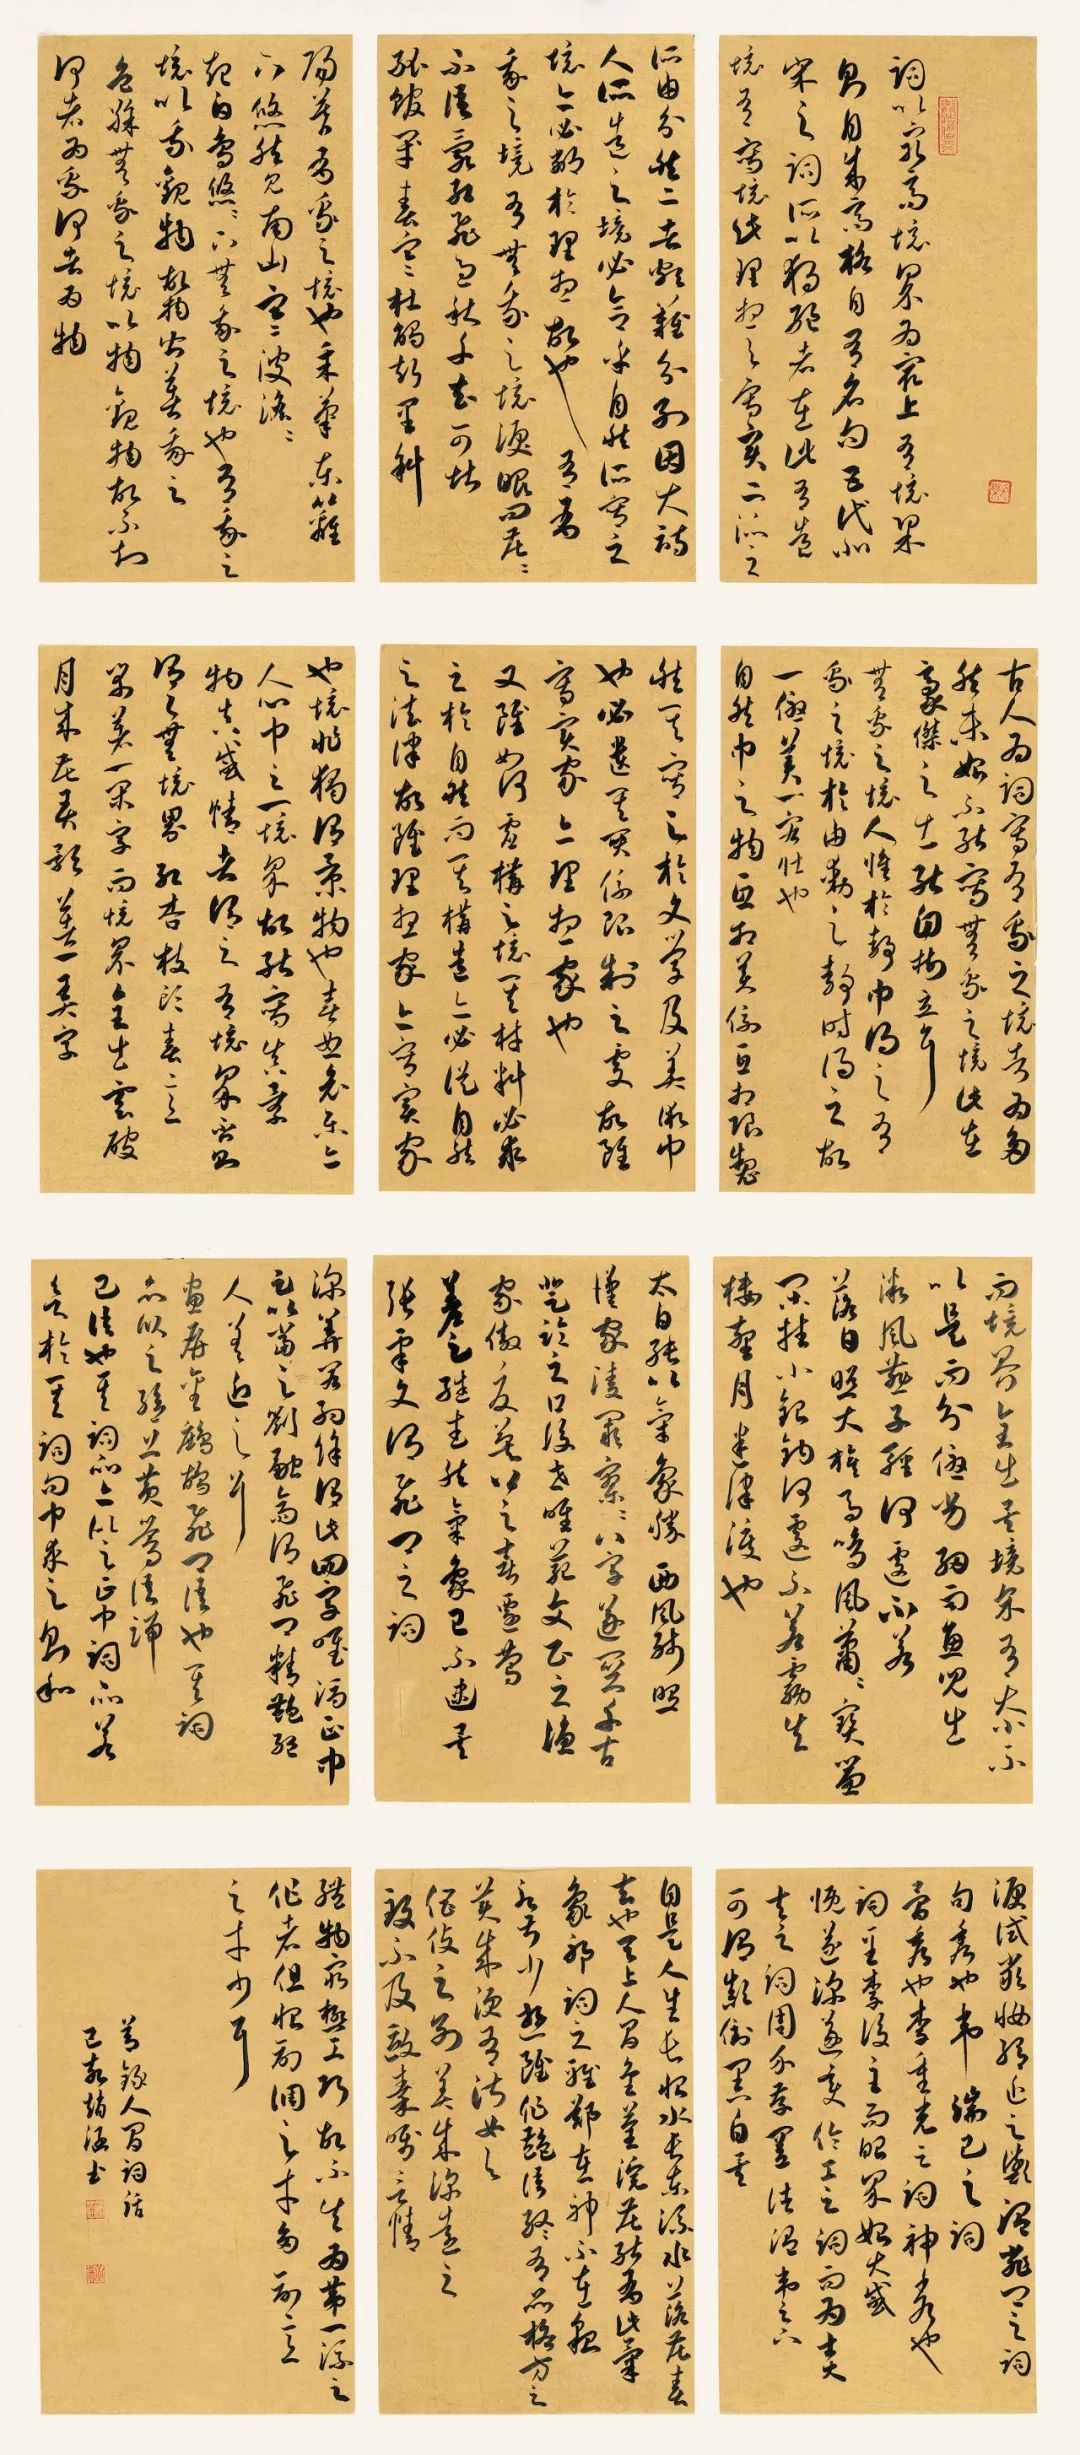 詞以最高境界為最上有境界
則自成高格自有名句五代北
宋之詞所以獨絕者在此有造
境有寫境此理想之寫實二派之
所由分然二者頗難分別因大詩
人所造之境必合乎自然所寫之
境亦必鄰於理想故也 有有
我之境有無我之境淚眼問花花
不語亂紅飛過秋千去可堪
孤館閉春寒杜鵑聲里斜
陽暮有我之境也采菊東籬
下悠然見南山寒波澹澹
起白鳥悠悠下無我之境也有我之
境以我觀物故物皆著我之
色彩無我之境以物觀物故不知
何者為我何者為物
古人為詞寫有我之境者為多
然未始不能寫無我之境此在
豪傑之士能自樹立耳
無我之境人惟於靜中得之有
我之境於由動之靜時得之故
一優美一宏壯也
自然中之物互相關係互相限制
然其寫之於文學及美術中
也必遺其關係限制之處故雖
寫實家亦理想家也
又雖如何虛構之境其材料必求
之於自然而其構造亦必從自然
之法律故雖理想家亦寫實家
也境非獨謂景物也喜怒哀樂亦
人心中之一境界故能寫真景
物真感情者謂之有境界否則
謂之無境界紅杏枝頭春意
鬧著一鬧字而境界全出雲破
月來花弄影著一弄字
而境界全出矣境界有大小不
以是而分優劣細雨魚兒出
微風燕子輕何遽不若
落日照大旗馬鳴風蕭蕭寶簾
閑挂小銀鉤何遽不若霧失
樓臺月迷津渡也
太白純以氣象勝西風殘照
漢家陵闕寥寥八字遂關千古
登臨之口後世唯范文正之漁
家傲夏英公之喜遷鶯
差足繼武然氣象已不逮矣
張皋文謂飛卿之詞
深美閎約余謂此四字唯馮正中
足以當之劉融齋謂飛卿精艷絕
人差近之耳
畫屏金鷓鴣飛卿語也其詞
品似之弦上黃鶯語端
己語也其詞品亦似之正中詞品若
欲於其詞句中求之則和
淚試嚴妝殆近之歟溫飛卿之詞
句秀也韋端己之詞
骨秀也李重光之詞神秀也
詞至李後主而眼界始大感
慨遂深遂變伶工之詞而為士大
夫之詞周介存置諸溫韋之下
可謂顛倒黑白矣
自是人生長恨水長東流水落花春
去也天上人間金荃浣花能有此氣
象耶詞之雅鄭在神不在貌
永叔少游雖作艷語終有品格方之
美成便有淑女與
倡伎之別美成深遠之
致不及歐秦唯言情
體物窮極工巧故不失為第一流之
作者但恨創調之才多創意
之才少耳
節錄人間詞話
己亥趙書